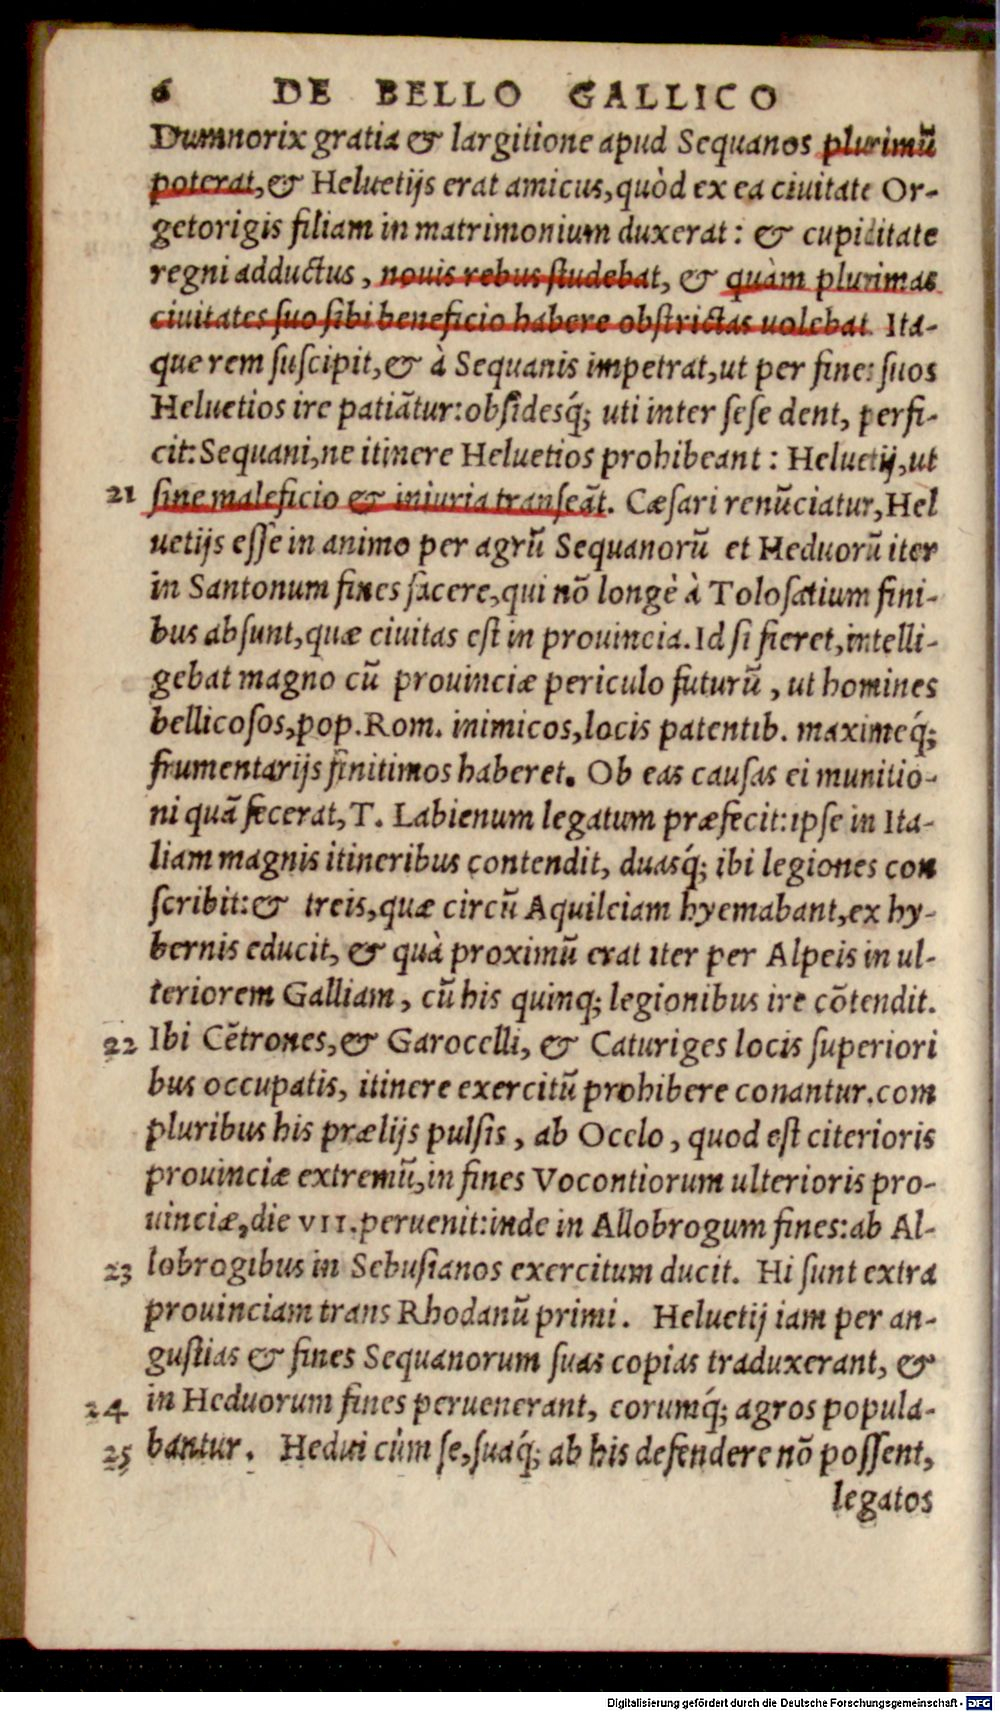 6 DE BELLO GALLICO
Dumnorix gratia & largitione apud Sequanos plurimū
poterat, & Heluetijs erat amicus, quòd ex ea ciuitate Or-
getorigis filiam in matrimonium duxerat: & cupiditate
regni adductus, nouis rebus ſtudebat, & quàm plurimas
ciuitates ſuo ſibi beneficio habere obſtrictas uolebat. Ita-
que rem ſuſcipit, & à Sequanis impetrat, ut per fines ſuos
Heluetios ire patiātur: obſidesq́; uti inter ſeſe dent, perfi-
cit: Sequani, ne itinere Heluetios prohibeant: Heluetij, ut
21 ſine maleficio & iniuria tranſeāt. Cæſari renūciatur, Hel
uetijs eſſe in animo per agrū Sequanorū et Heduorū iter
in Santonum fines facere, qui nō longè à Toloſatium fini-
bus abſunt, quæ ciuitas eſt in prouincia. Id ſi fieret, intelli-
gebat magno cū prouinciæ periculo futurū, ut homines
bellicoſos, pop. Rom. inimicos, locis patentib. maximeq́;
frumentarijs finitimos haberet. Ob eas cauſas ei munitio-
ni quā fecerat, T. Labienum legatum præfecit: ipſe in Ita-
liam magnis itineribus contendit, duasq́; ibi legiones con
ſcribit: & treis, quæ circū Aquileiam hyemabant, ex hy-
bernis educit, & quà proximū erat iter per Alpeis in ul-
teriorem Galliam, cū his quinq; legionibus ire cōtendit.
22 Ibi Cētrones, & Garocelli, & Caturiges locis ſuperiori
bus occupatis, itinere exercitū prohibere conantur. com
pluribus his prælijs pulſis, ab Ocelo, quod eſt citerioris
prouinciæ extremū, in fines Vocontiorum ulterioris pro-
uinciæ, die VII. peruenit: inde in Allobrogum fines: ab Al-
23 lobrogibus in Sebuſianos exercitum ducit. Hi ſunt extra
prouinciam trans Rhodanū primi. Heluetij iam per an-
guſtias & fines Sequanorum ſuas copias traduxerant, &
24 in Heduorum fines peruenerant, eorumq́; agros popula-
25 bantur. Hedui cùm ſe, ſuaq́; ab his defendere nō poſſent,
legatos
Digitalisierung gefördert durch die Deutsche Forschungsgemeinschaft - DFG